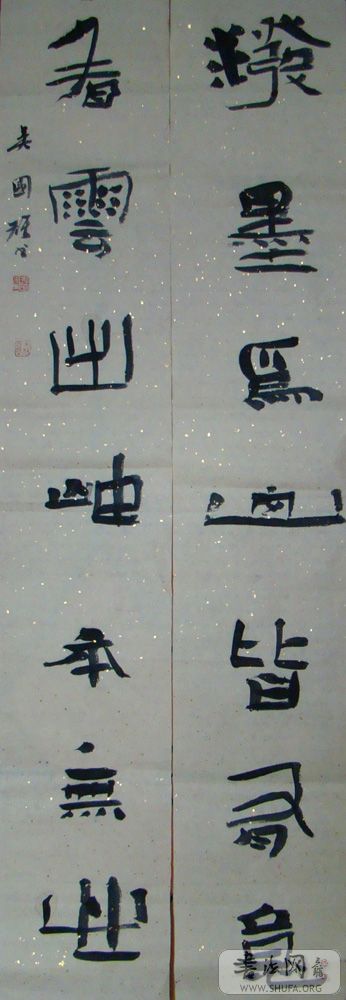 潑墨為山皆有意
看雲出岫本無心
吳國
書法网
WWW.SHUFA.ORG